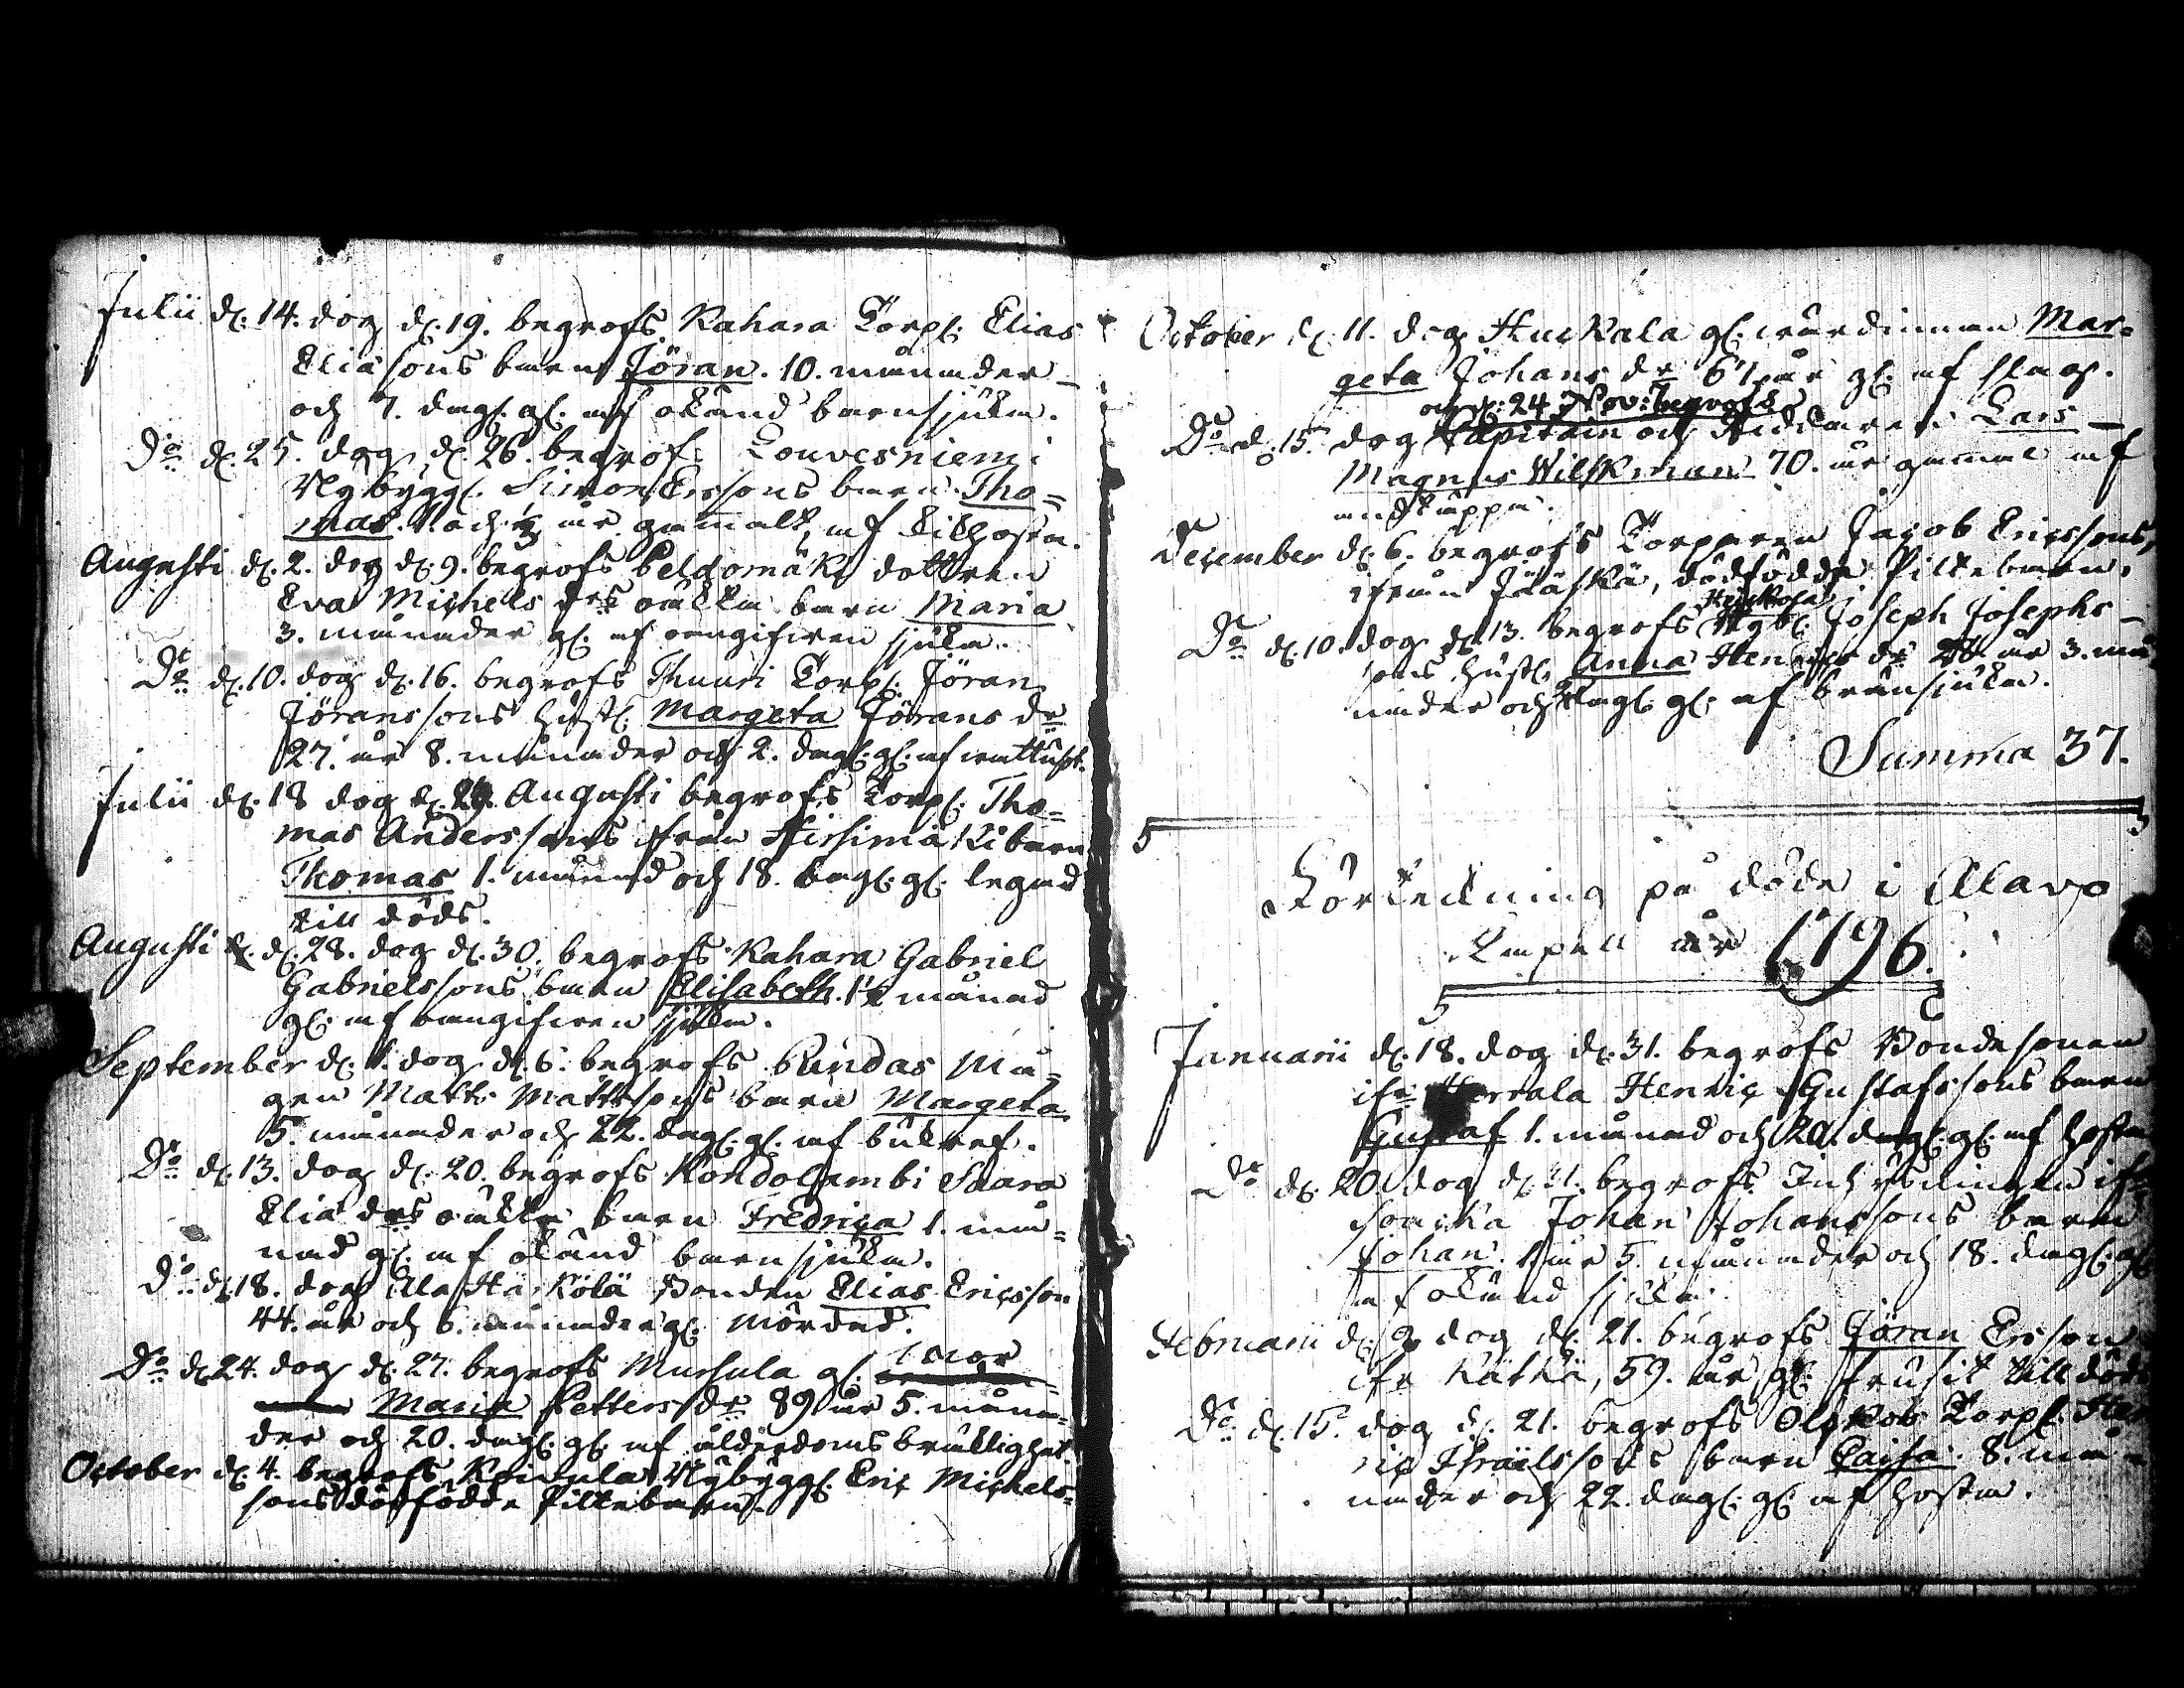 Julii d: 14. dog d: 19. begrofs Kahara Torp: Elias
Eliæsons barn Jöran. 10. månader
och 7. dag: gl: af okänd barnsjuka.
Do d: 25. dog d: 26. begrofs Louvesniemi
Nybygg: Simon Erssons barn Tho=
mas. 1 och ½ år gammalt, af kikhosta.
Augusti d: 2. dog d: 9. begrofs Peldomäki dottren
Eva Michels drs oäkta barn Maria
3. månader gl: af oangifven sjuka.
Do d: 10. dog d: 16. begrofs Thuuri Torp: Jöran
Jöranssons hust: Margeta Jörans dr
27. år 8. månader och 2. dag: gl: af vattusot.
Julii d: 18 dog d: 24. Augusti begrofs Torp: Tho=
mas Anderssons ifrån Hirsimäki barn
Thomas 1. månad och 18. dag: gl: legad
till döds.
Augusti d: 28. dog d: 30. begrofs Kahara Gabriel
Gabrielssons barn Elisabeth. 1½ månad
gl: af oangifven sjuka.
September d: 1. dog d: 6. begrofs Rindas Må=
gen Matts Mattssons barn Margeta
5. månader och 22. dag: gl: af bukref.
Do d: 13. dog d: 20. begrofs Kondolambi Saara
Eliæ drs oäkta barn Fredrica 1. må=
nad gl: af okänd barnsjuka.
Do d: 18. dog Ala Härkölä Bonden Elias Ericsson
44. år och 6. månader gl: mördad.
Do d: 24. dog d: 27. begrofs Mursula gl: mor
Maria Petters dr 89 år 5. måna=
der och 20. dag: gl: af ålderdoms bräklighet.
October d: 4. begrofs Nybygg: Eric Michels=
sons dödfödde Piltebarn.
October d: 11. dog Huckala gl: värdinnan Mar=
geta Johans dr 61 år gl: af slag.
och d: 24 Nov: begrofs
Do d: 15. dog Capitain och Riddaren Lars
Magnus Wilskman 70. år gammal af
andtäppa.
December d: 6. begrofs Torparen Jacob Ericssons,
ifrån Jääskä, dödfödda Piltebarn.
Do d: 10. dog d: 13. begrofs Nyb: Joseph Josephs
sons hust: Anna Henrics dr 28 år 3. må
nader och dag: gl: af brännsjuka.
Summa 37.
Förtekning på döda i Alavo
Capell år 1796.
Januarii d: 18. dog d: 31. begrofs Bondesonen
ifr Herrala Henric Gustafssons barn
Gustaf 1. månad och 20. dag: gl: af hosta
Do d: 20. dog d: 31. begrofs Inhysingen ifr
Johan Johanssons barn
Johan. 1 år 5. månader och 18. dag: gl:
af okänd sjuka.
Februarii d: 9. dog d: 21. begrofs Jöran Ersson
ifr Kätkä, 59. år gl: frusit till döds
Do d: 15. dog d: 21. begrofs Olgkos Torp: Hen
ric Israelssons barn Caisa. 8. må=
nader och 22. dag: gl: af hosta.